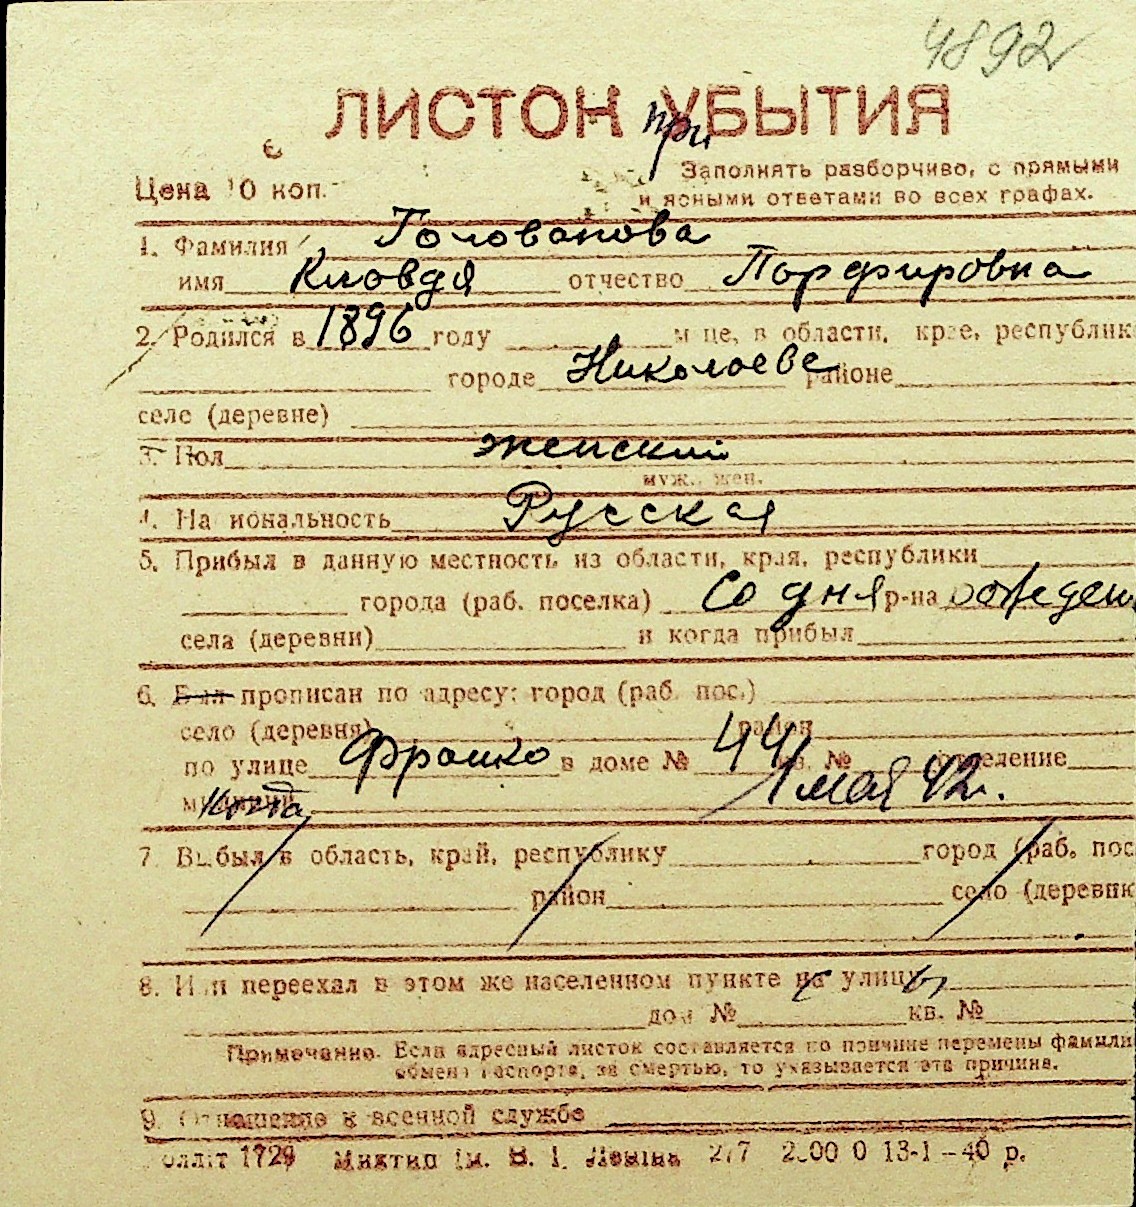 4892
ЛИСТОК УБЫТИЯ
при
Заполнять разборчиво, с прямыми
Цена 10 коп.
и ясными ответами во всех графах.
1. Фамилия Голованова
имя Клавдя отчество Порфировна
2. Родился в 1896 году м це, в области, крае, республик
городе Николаеве районе
селе (деревне)
3. Пол женский
муж., жен.
4. На иональность Русская
5. Прибыл в данную местность из области, края, республики
города (раб. поселка) Со дня р-на рожден
села (деревни) и когда прибыл
6. Был прописан по адресу: город (раб. пос.)
село (деревня) район
по улице Франко в доме № 44 кв. № отделение
когда 1 мая 42 г.
7. Выбыл в область, край, республику город (раб. пос
район село (деревню
8. Или переехал в этом же населенном пункте на улицу
дом № кв. №
Примечание. Если адресный листок составляется по причине перемены фамили
обмена паспорта, за смертью, то указывается эта причина.
9. Отношение к военной службе
оллит 1729 Миктип Им. В. И. Ленина 2/7 2000 0 13-1-40 р.